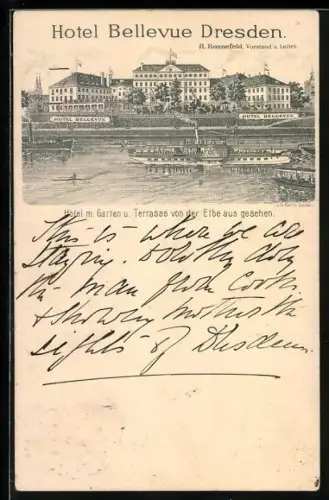 Hotel Bellevue Dresden.
R. Ronnefeld, Vorstand u. Leiter.
HOTEL BELLEVUE
HOTEL BELLEVUE
Hotel m. Garten u. Terrasse von der Elbe aus gesehen.
This is where we are
staying. doing
the man from Cooks
& showing mother the
sights of Dresden.